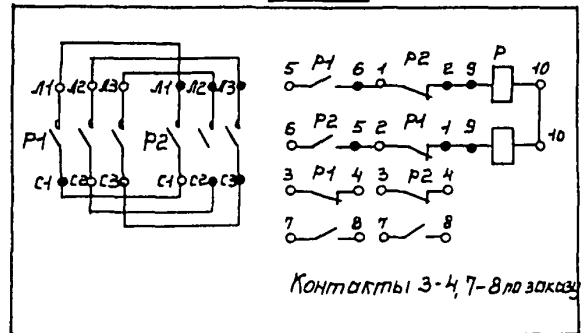 Л1 Л2 Л3 Л1 Л2 Л3
Р1 Р2
С1 С2 С3 С1 С2 С3
5 Р1 6 1 Р2 2 9 Р 10
6 Р2 5 2 Р1 1 9 10
3 Р1 4 3 Р2 4
7 8 7 8
Контакты 3-4, 7-8 по заказу